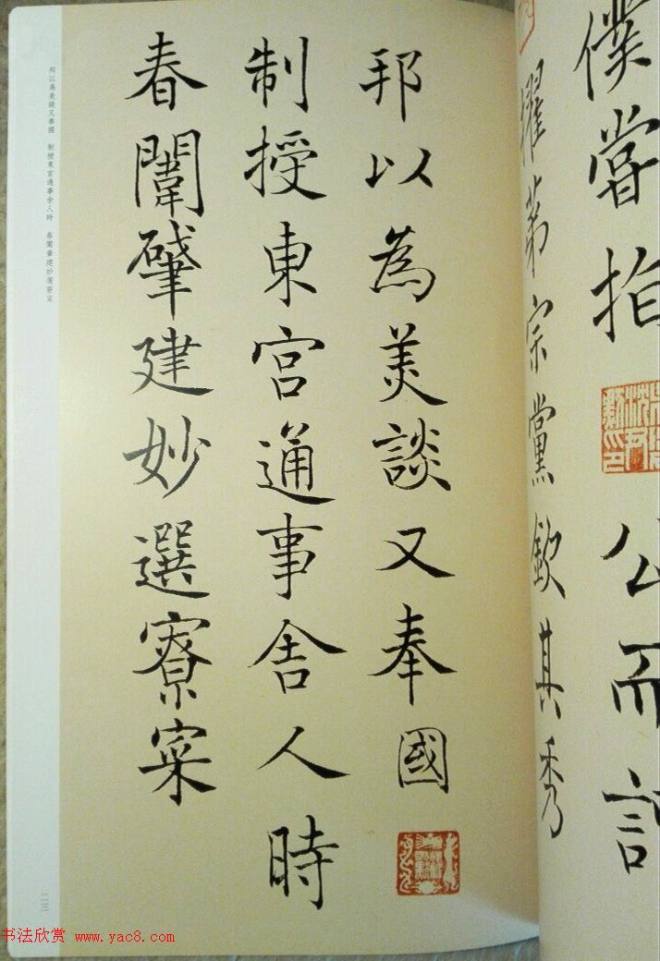 僕嘗抬
公而
擢第宗黨欽其秀
邦以為美談又奉國
制授東宮通事舍人時
春闈肇建妙選寮寀
邦以為美談又奉國 制授東宮通事舍人時 春闈肇建妙選寮寀
书法欣赏 www.yac8.com